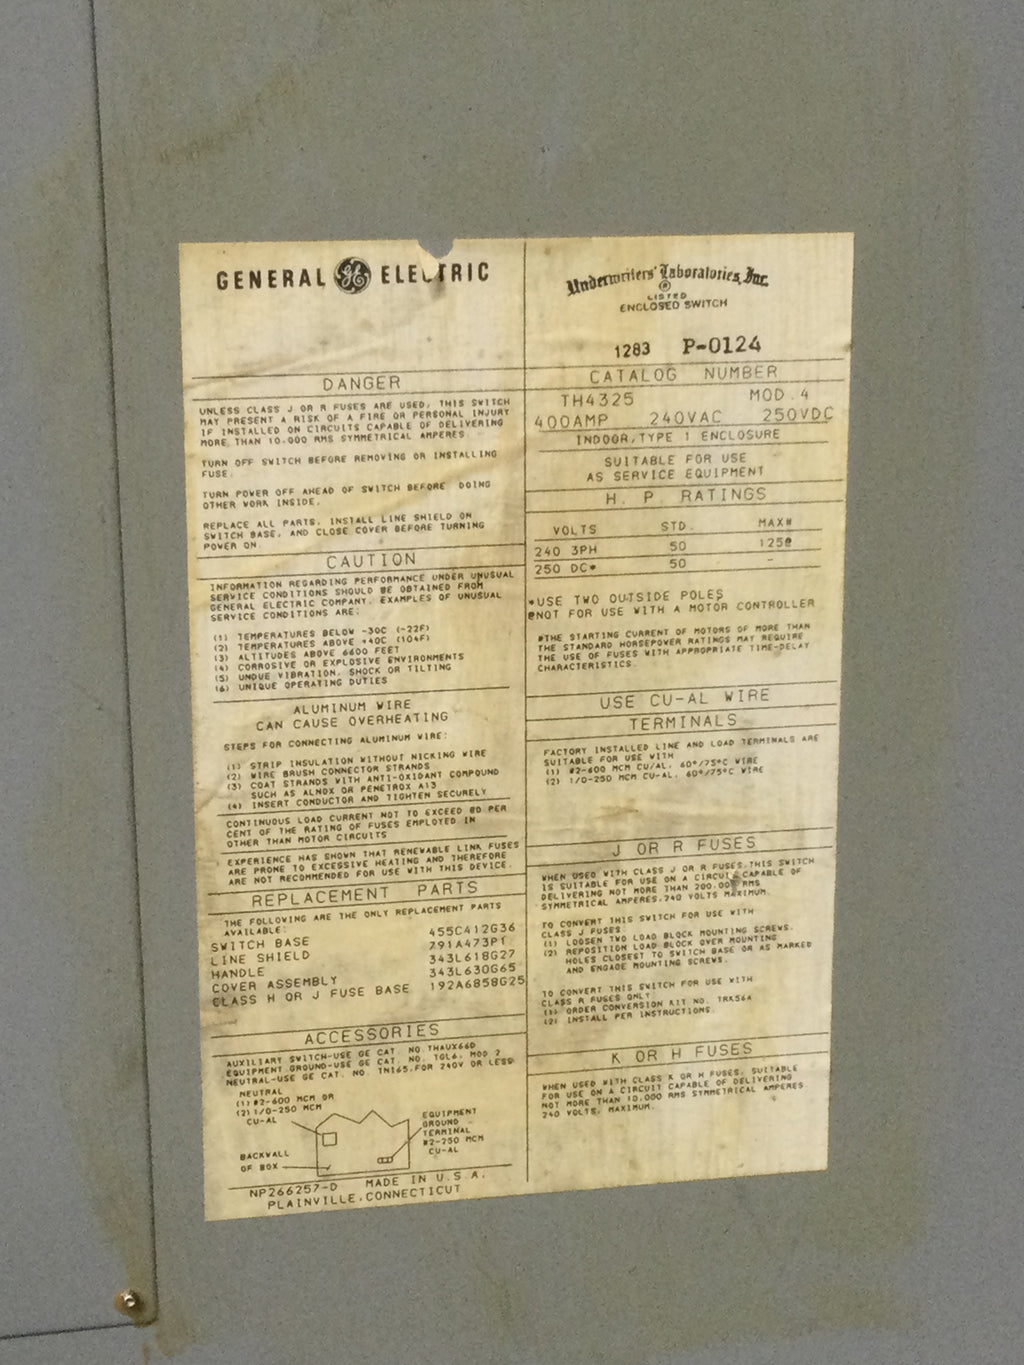 GENERAL GE ELECTRIC
DANGER
UNLESS CLASS J OR R FUSES ARE USED, THIS SWITCH
MAY PRESENT A RISK OF A FIRE OR PERSONAL INJURY
IF INSTALLED ON CIRCUITS CAPABLE OF DELIVERING
MORE THAN 10,000 RMS SYMMETRICAL AMPERES
TURN OFF SWITCH BEFORE REMOVING OR INSTALLING
FUSE.
TURN POWER OFF AHEAD OF SWITCH BEFORE DOING
OTHER WORK INSIDE.
REPLACE ALL PARTS, INSTALL LINE SHIELD ON
SWITCH BASE, AND CLOSE COVER BEFORE TURNING
POWER ON.
CAUTION
INFORMATION REGARDING PERFORMANCE UNDER UNUSUAL
SERVICE CONDITIONS SHOULD BE OBTAINED FROM
GENERAL ELECTRIC COMPANY. EXAMPLES OF UNUSUAL
SERVICE CONDITIONS ARE:
(1) TEMPERATURES BELOW -30C (-22F)
(2) TEMPERATURES ABOVE +40C (104F)
(3) ALTITUDES ABOVE 6600 FEET
(4) CORROSIVE OR EXPLOSIVE ENVIRONMENTS
(5) UNDUE VIBRATION, SHOCK OR TILTING
(6) UNIQUE OPERATING DUTIES
ALUMINUM WIRE
CAN CAUSE OVERHEATING
STEPS FOR CONNECTING ALUMINUM WIRE:
(1) STRIP INSULATION WITHOUT NICKING WIRE
(2) WIRE BRUSH CONNECTOR STRANDS
(3) COAT STRANDS WITH ANTI-OXIDANT COMPOUND
SUCH AS ALNOX OR PENETROX A13
(4) INSERT CONDUCTOR AND TIGHTEN SECURELY
CONTINUOUS LOAD CURRENT NOT TO EXCEED 80 PER
CENT OF THE RATING OF FUSES EMPLOYED IN
OTHER THAN MOTOR CIRCUITS
EXPERIENCE HAS SHOWN THAT RENEWABLE LINK FUSES
ARE PRONE TO EXCESSIVE HEATING AND THEREFORE
ARE NOT RECOMMENDED FOR USE WITH THIS DEVICE.
REPLACEMENT PARTS
THE FOLLOWING ARE THE ONLY REPLACEMENT PARTS
AVAILABLE:
SWITCH BASE 455C412G36
LINE SHIELD 291A473P1
HANDLE 343L618G27
COVER ASSEMBLY 343L630G65
CLASS H OR J FUSE BASE 192A6858G25
ACCESSORIES
AUXILIARY SWITCH-USE GE CAT. NO. THAUX66D
EQUIPMENT GROUND-USE GE CAT. NO. TGL6, MOD 2
NEUTRAL-USE GE CAT. NO. TN165,FOR 240V OR LESS
NEUTRAL
(1) #2-600 MCM OR
(2) 1/0-250 MCM
CU-AL
EQUIPMENT
GROUND
TERMINAL
#2-250 MCM
CU-AL
BACKWALL
OF BOX
NP266257-D MADE IN U.S.A.
PLAINVILLE,CONNECTICUT
Underwriters' Laboratories, Inc.
®
LISTED
ENCLOSED SWITCH
1283 P-0124
CATALOG NUMBER
TH4325 MOD.4
400AMP 240VAC 250VDC
INDOOR,TYPE 1 ENCLOSURE
SUITABLE FOR USE
AS SERVICE EQUIPMENT
H.P. RATINGS
VOLTS STD. MAX#
240 3PH 50 125@
250 DC* 50 -
*USE TWO OUTSIDE POLES
@NOT FOR USE WITH A MOTOR CONTROLLER
#THE STARTING CURRENT OF MOTORS OF MORE THAN
THE STANDARD HORSEPOWER RATINGS MAY REQUIRE
THE USE OF FUSES WITH APPROPRIATE TIME-DELAY
CHARACTERISTICS.
USE CU-AL WIRE
TERMINALS
FACTORY INSTALLED LINE AND LOAD TERMINALS ARE
SUITABLE FOR USE WITH
(1) #2-600 MCM CU/AL, 60°/75°C WIRE
(2) 1/0-250 MCM CU-AL, 60°/75°C WIRE
J OR R FUSES
WHEN USED WITH CLASS J OR R FUSES,THIS SWITCH
IS SUITABLE FOR USE ON A CIRCUIT CAPABLE OF
DELIVERING NOT MORE THAN 200,000 RMS
SYMMETRICAL AMPERES,240 VOLTS MAXIMUM.
TO CONVERT THIS SWITCH FOR USE WITH
CLASS J FUSES:
(1) LOOSEN TWO LOAD BLOCK MOUNTING SCREWS.
(2) REPOSITION LOAD BLOCK OVER MOUNTING
HOLES CLOSEST TO SWITCH BASE OR AS MARKED
AND ENGAGE MOUNTING SCREWS.
TO CONVERT THIS SWITCH FOR USE WITH
CLASS R FUSES ONLY:
(1) ORDER CONVERSION KIT NO. TRK56A
(2) INSTALL PER INSTRUCTIONS.
K OR H FUSES
WHEN USED WITH CLASS K OR H FUSES, SUITABLE
FOR USE ON A CIRCUIT CAPABLE OF DELIVERING
NOT MORE THAN 10,000 RMS SYMMETRICAL AMPERES
240 VOLTS, MAXIMUM.